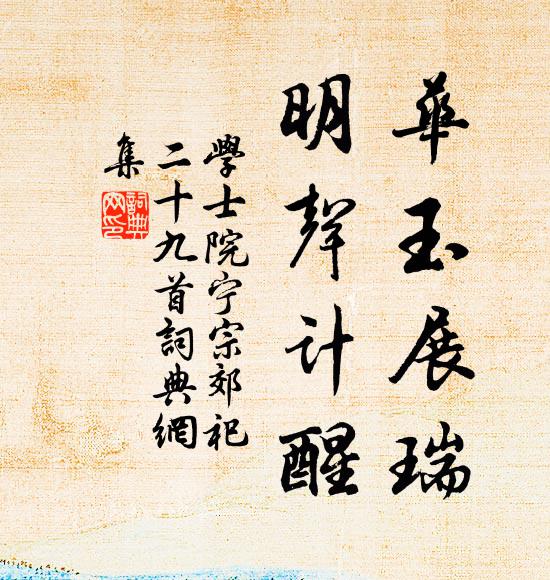 華玉展瑞
明聲計醒
學士院宁宗郊祀
二十九首詞典網
集
詞典
网印